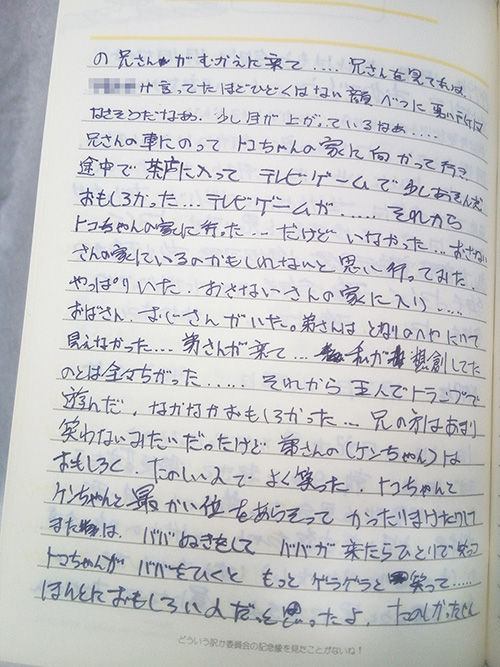 の兄さんがむかえに来て…… 兄さんを見てれば、
が言ってたほどひどくはない顔 べつに悪い人では
なさそうだなあ. 少し目が上がっているなあ....
兄さんの車にのって トコちゃんの家に向かって行き
途中で茶店に入って テレビゲームで少しあそんだ
おもしろかった... テレビゲームが..... それから
トコちゃんの家に行った... だけど いなかった... おさない
さんの家にいるのかもしれないと思い行ってみた.
やっぱりいた. おさないさんの家に入り.....
おばさん、おじさんがいた。弟さんは となりのへやにいて
見えなかった.... 弟さんが来て... 私が想創してた
のとは全々ちがった..... それから 五人でトランプで
遊んだ. なかなかおもしろかった... 兄の方はあまり
笑わないみたいだったけど 弟さんの(ケンちゃん)は
おもしろく. たのしい人で よく笑った. トコちゃんと
ケンちゃんと 最かい位をあらそって かったりまけたりして
また は、ババぬきをして ババが来たらひとりで笑って
トコちゃんが ババをひくと もっと ゲラゲラと笑って.....
ほんとにおもしろい人だっと思ったよ. たのしかったし
どういう訳か委員会の記念像を見たことがないね!